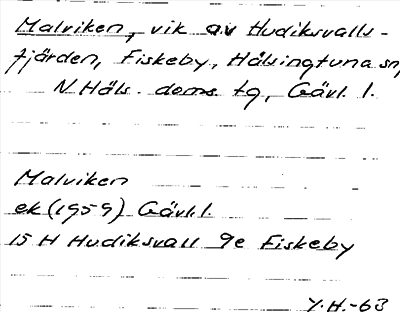 Malviken, vik av Hudiksvalls-
fjärden, Fiskeby, Hälsingtuna sn,
N. Häls. doms. tg, Gävl. l.
Malviken
ek (1959) Gävl. l.
15 H Hudiksvall 9e Fiskeby
Y.H.-63